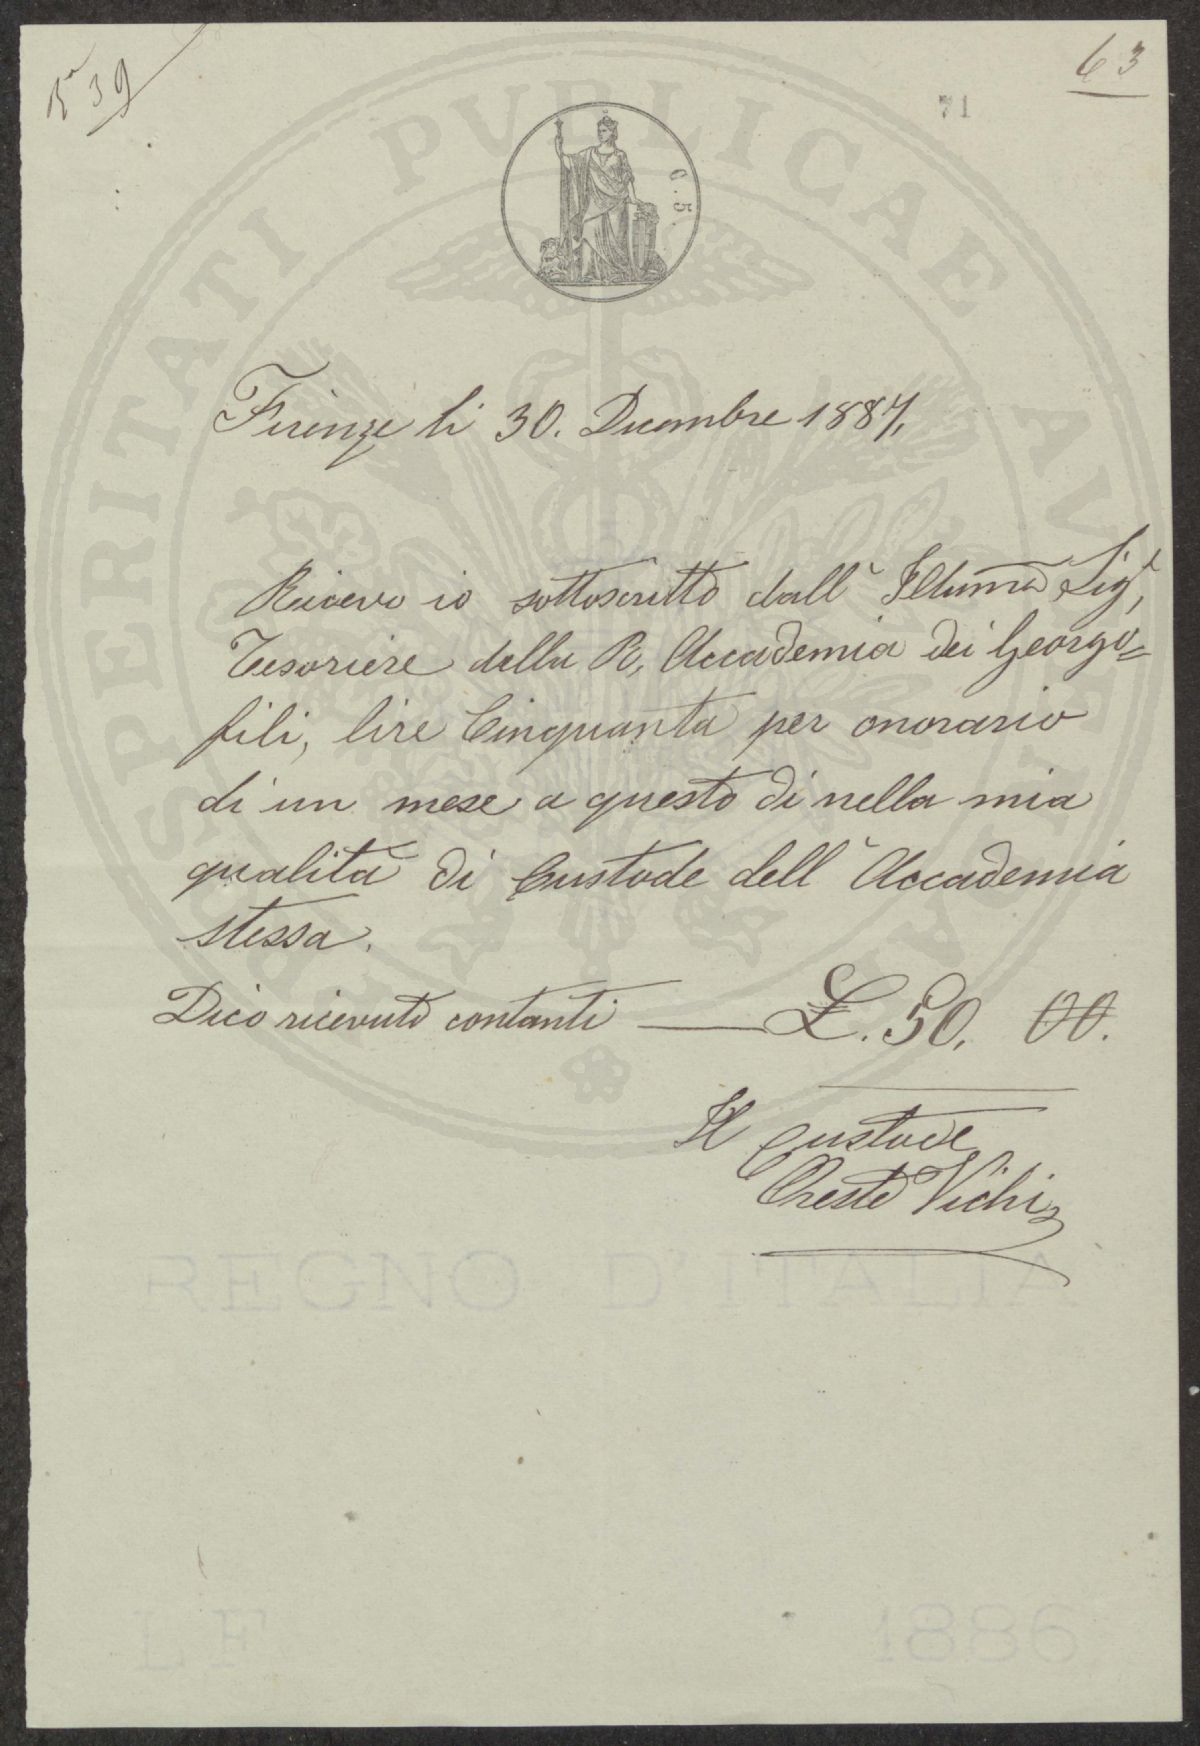 39
63
71
C. 5
PROSPERITATI PVBLICAE AVGENDAE
Firenze li 30. Dicembre 1887,
Ricevo io sottoscritto dall' Illmo Sigr,
Tesoriere della R, Accademia dei Georgo=
fili, lire Cinquanta per onorario
di un mese a questo di nella mia
qualità di Custode dell' Accademia
stessa.
Dico ricevuto contanti — £. 50. 00.
Il Custode
Oreste Vichi
REGNO D'ITALIA
LF 1886